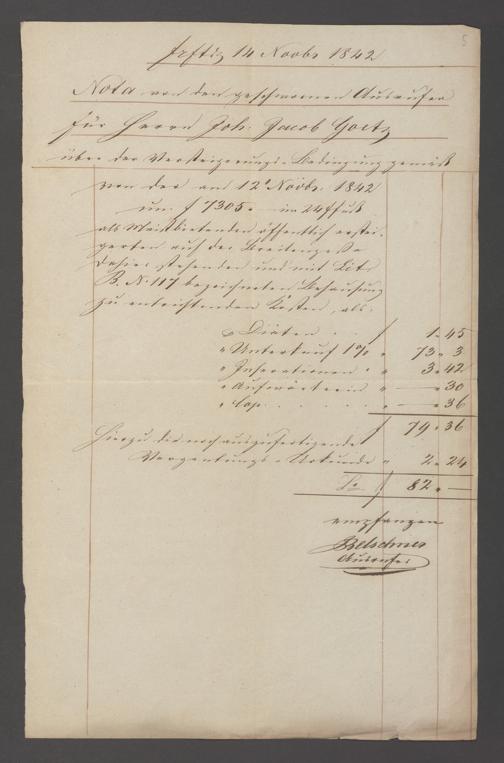 5
14 Novbr 1842
Nota von dem geschwornen Ausrufer
für Herrn Joh. Jacob Goetz
über der Versteigerungs-Bedingung gemäß
von der am 12t Novbr. 1842
um f 7305. im 24 ffuß
als Meistbietenden öffentlich erstei-
gerten auf der Breitengasse
dahier stehenden und mit Litr
B. N. 117 bezeichneten Behausung
zu entrichtenden Kosten, als:
" Diäten . . f 1. 45
" Unterkauf 1% " 73. 3
" Insertionen " " 3. 42
" Aufwärterin " — . 30
" Cop. . . . . . " — . 36
f 79. 36
Hierzu die noch auszufertigende
Vergantungs-Urkunde " 2. 24
Sa f 82. —
empfangen
Belschner
Ausrufer